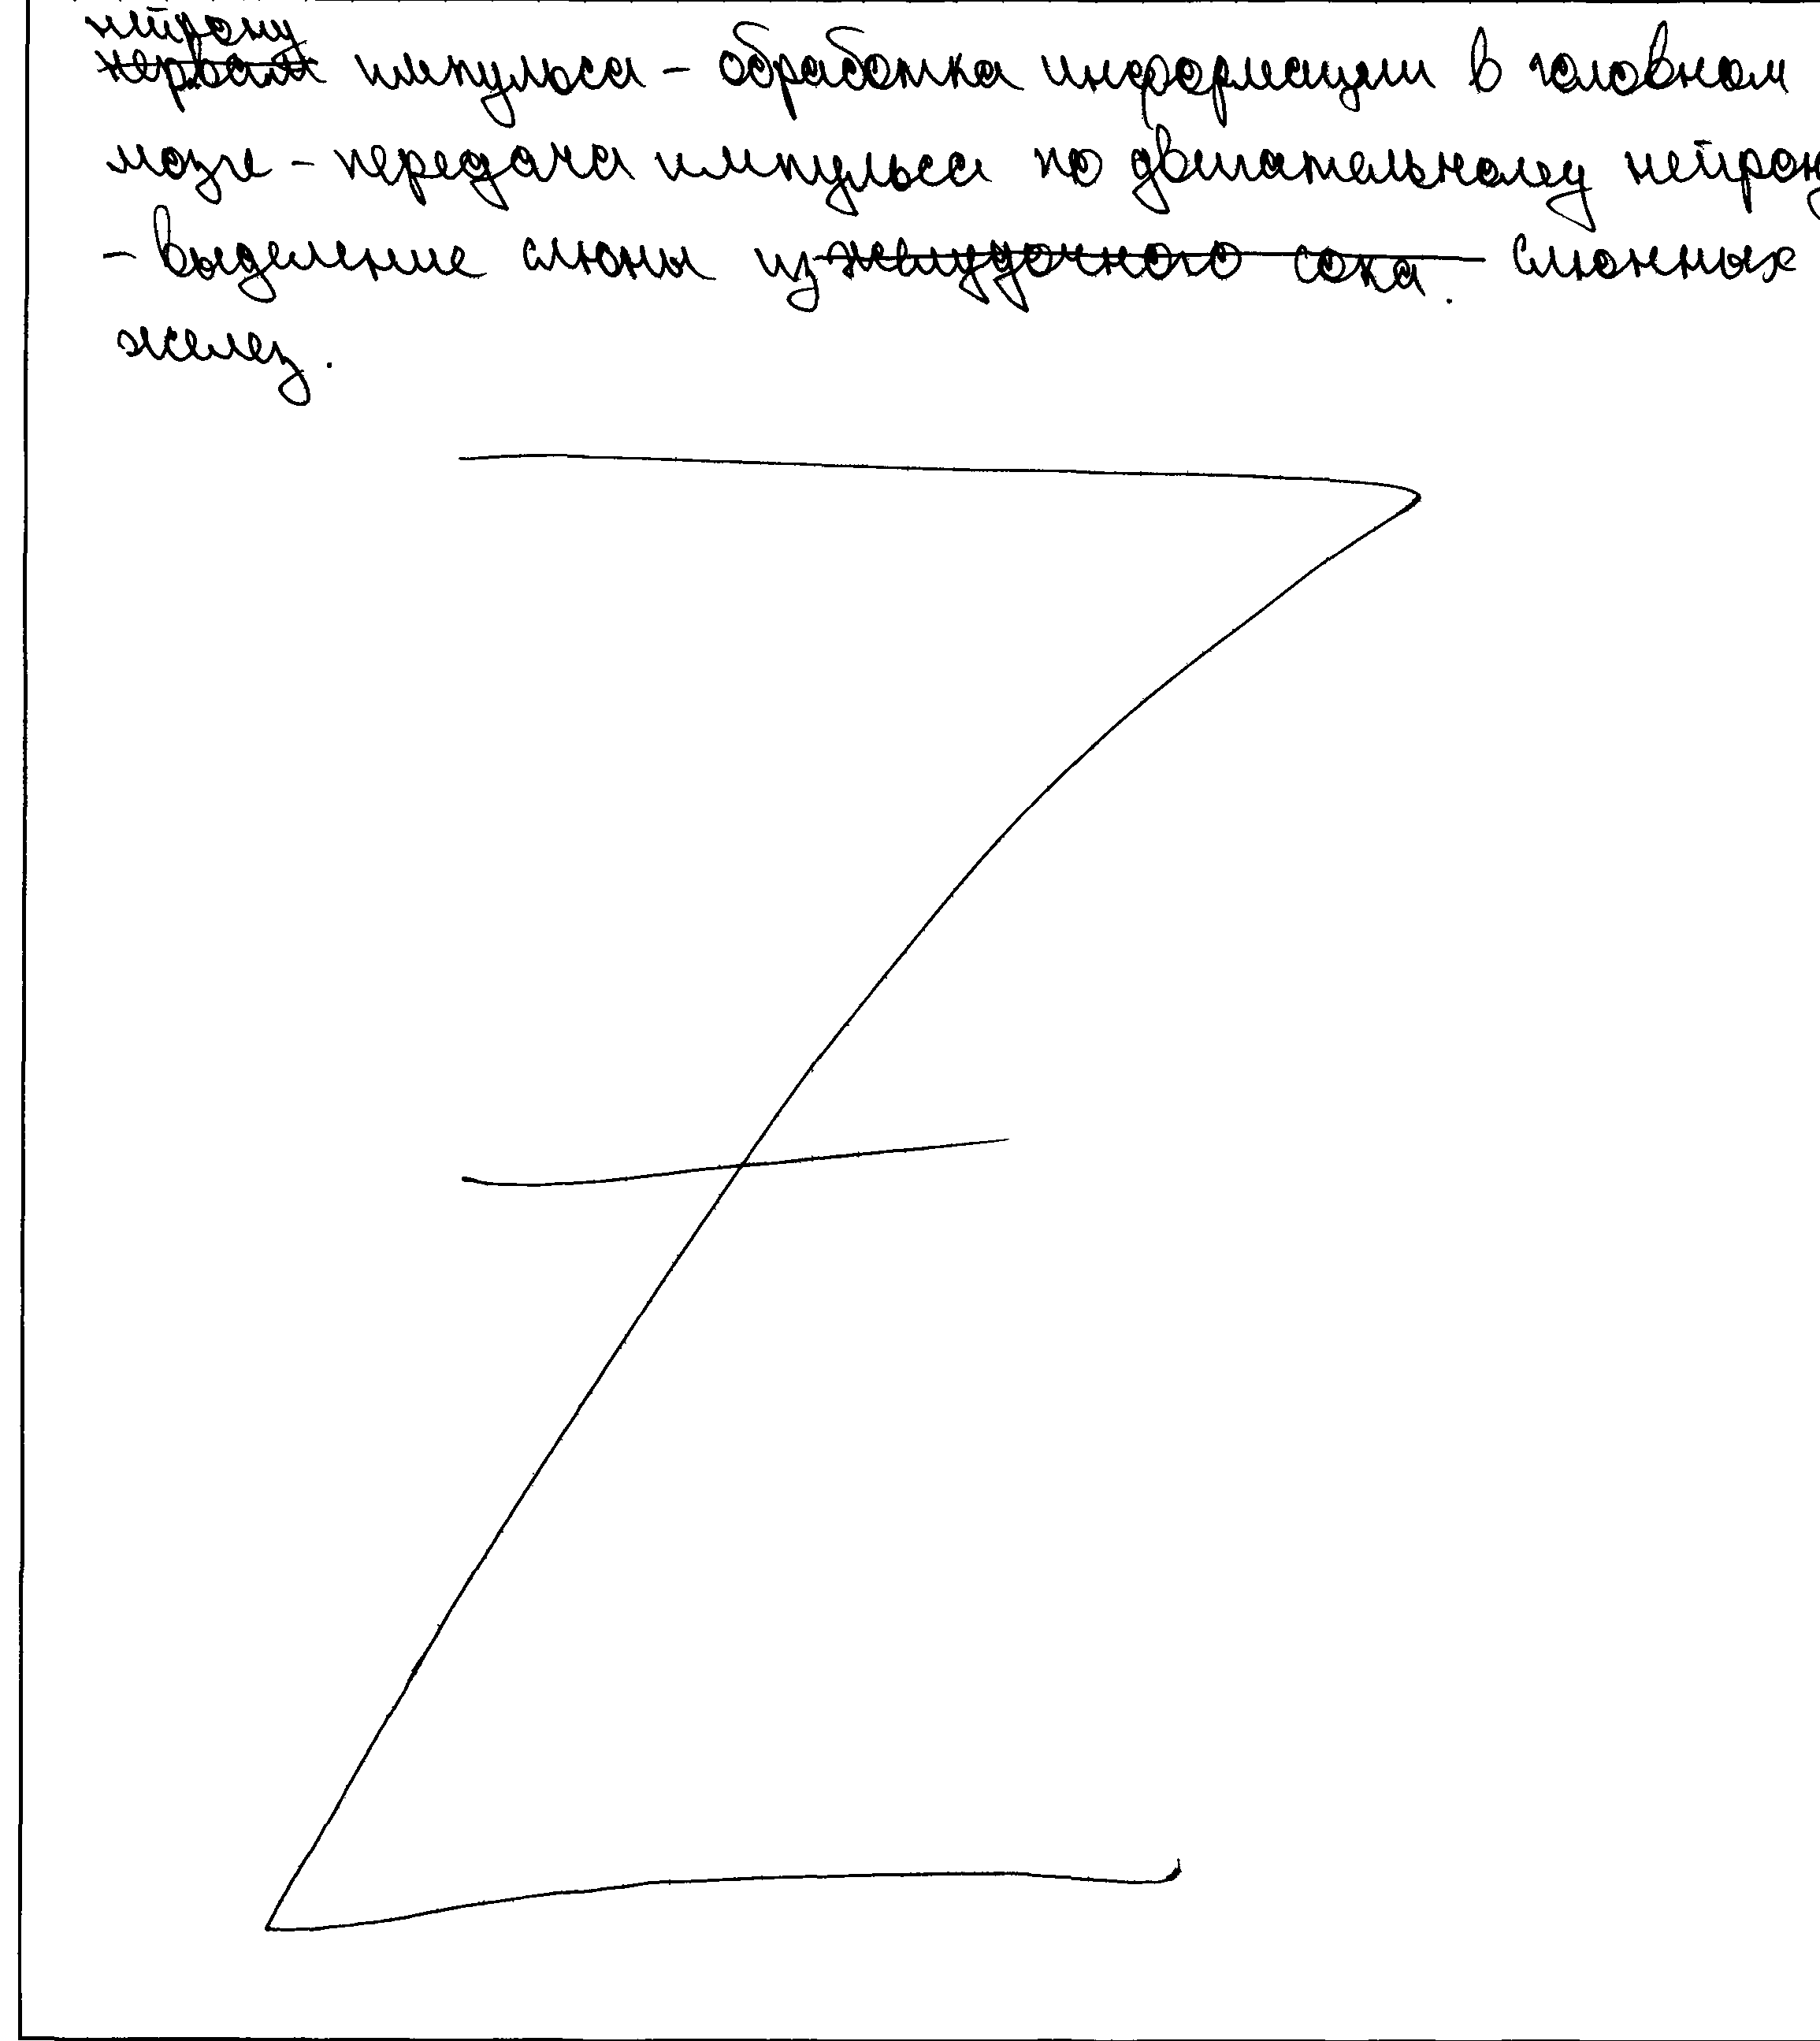 нейрону
нервам импульса - обработка информации в головном
мозге - передача импульса по двигательному нейрону
- выделение слюны из желудочного сока. слюнных
желез.